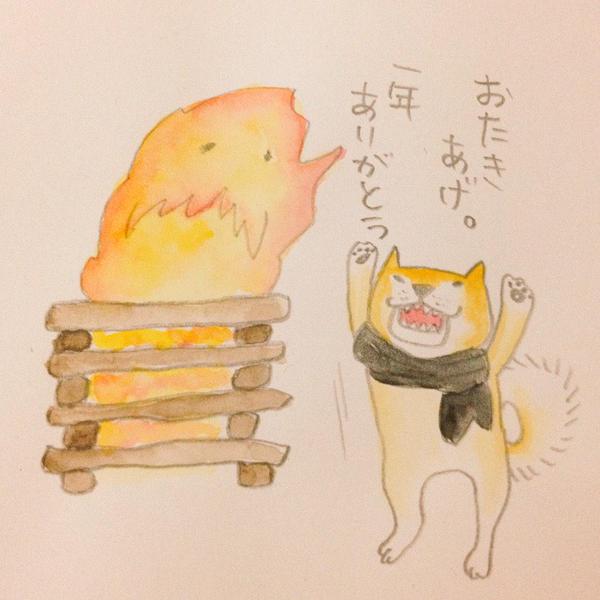 おたき
あげ。
一年
ありがとう